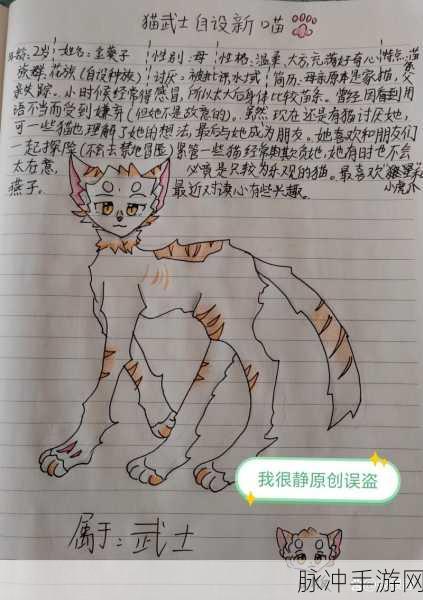 猫武士自设新喵
年龄:2岁 姓名:金葵子 性别:母 性格:温柔、大方,充满好奇心 特点:苗条
族群:花族(自设种族) 讨厌:被扯进水域 简历:母亲原本是家猫,父
亲失踪。小时候经常得感冒,所以长大后身体比较苗条。曾经因看到用
语不当而受到嫌弃(但她不是故意的)。虽然现在还是有猫讨厌她,
可一些猫也理解了她的想法,最后与她成为朋友。她喜欢和朋友们
一起探险(不会去禁地冒险)尽管一些猫经常欺负她,她有时也不会
太在意, 必竟是只较为乐观的猫。最喜欢
燕子。 最近对读心有些兴趣。 小虎爪
我很静原创误盗
属于:武士
脉冲手游网